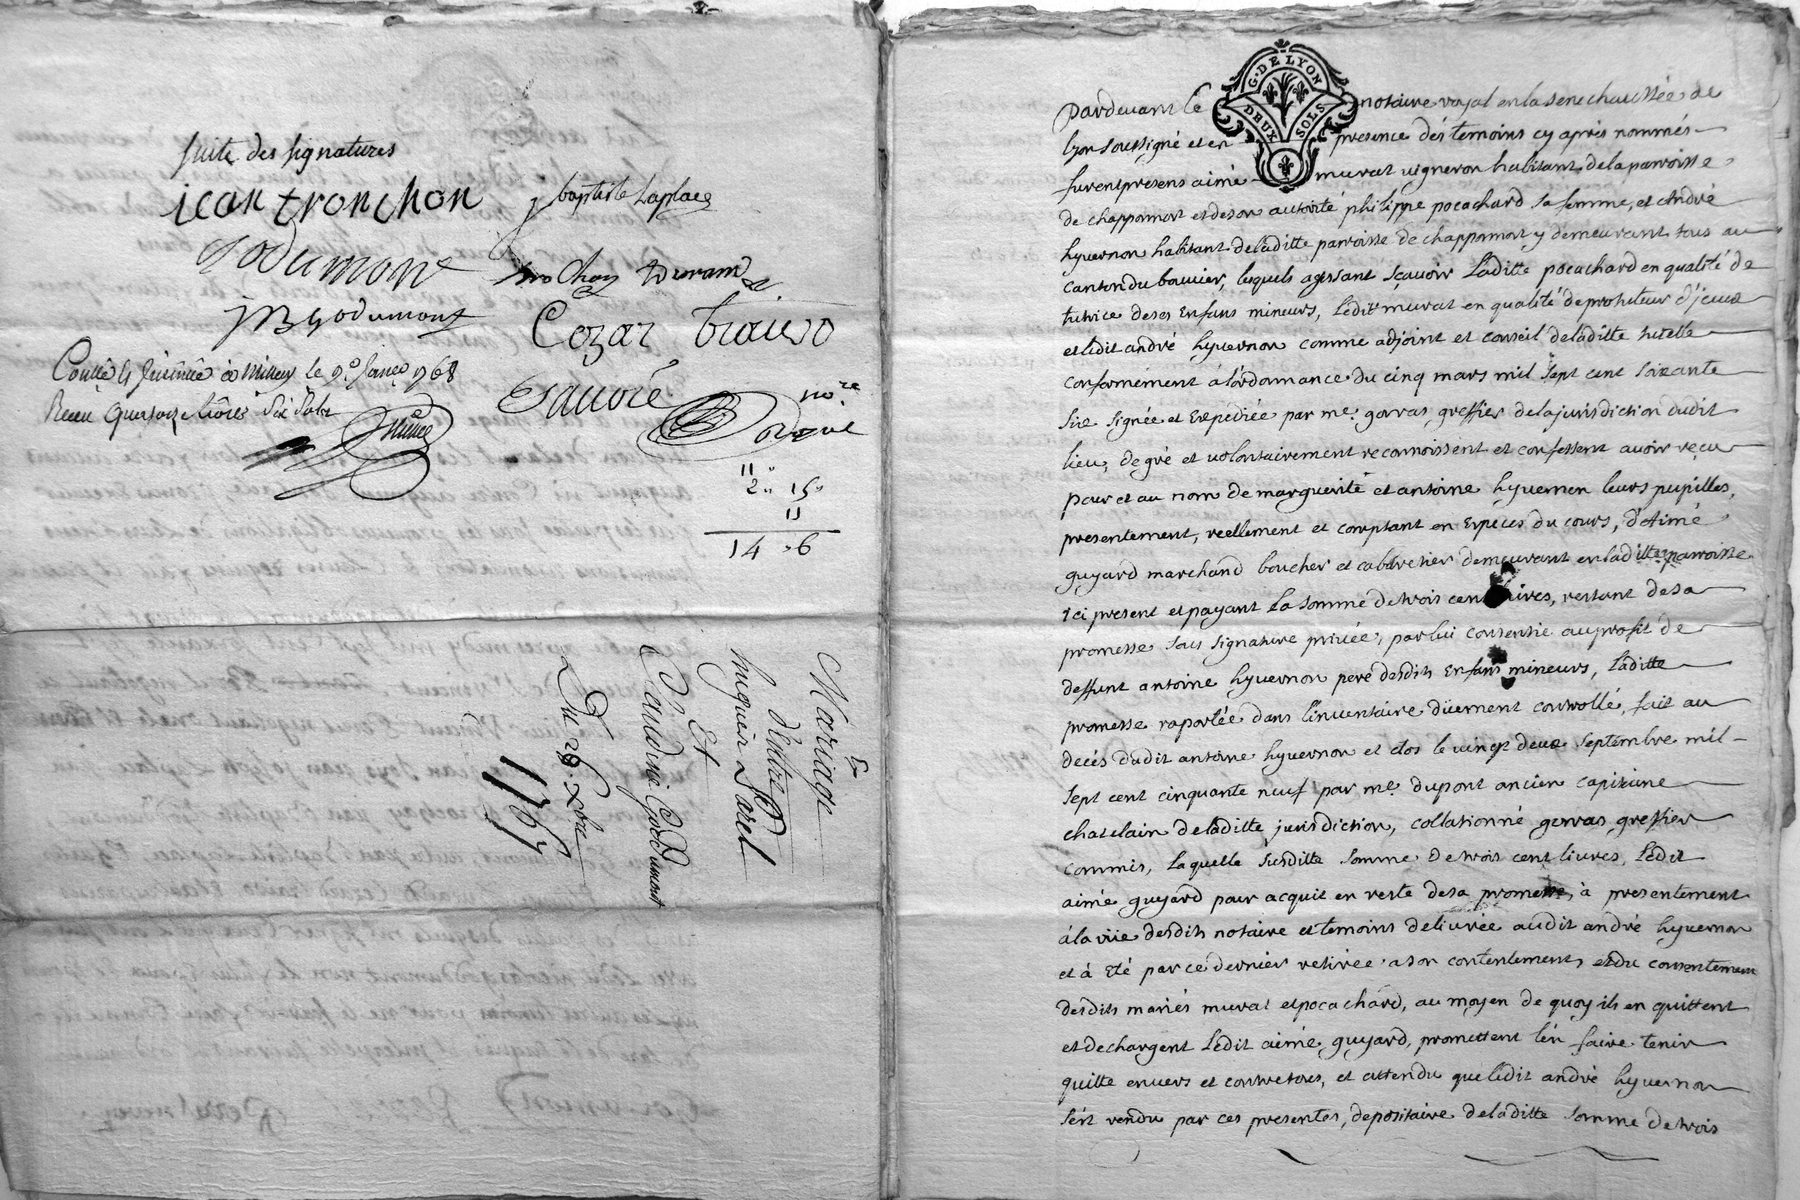 suite des signatures
jean tronchon
j baptiste Laplace
Godumont
Brochay Durand
JB godumont
Cezar Traivo
Sauvoré
no.re
le 9e Janer 1768
Receu Quatorze livres Six Sols
11 "
2 " 15 "
11
14 " 6
Mariage
d'entre
huguès Sarel
Et
Claudine Godumont
Du 29. xbre
1767
G. DE LYON
DEUX SOLS
Pardevant le notaire royal en la sénéchaussée de
lyon soussigné et en presence dés temoins cy aprés nommés
furent presens aimé murat vigneron habitant de la parroisse
de chapponnort et de son autorité philippe pocachard sa femme, et André
hyvernon habitant de laditte parroisse de chapponnort y demeurant tous au
canton du bouvier, lesquels agissant sçavoir Laditte pocachard en qualité de
tutrice de ses Enfans mineurs, Ledit murat en qualité de protuteur d'jceux
et ledit andré hyvernon comme adjoint et conseil de laditte tutelle
conformément à l'ordonnance du cinq mars mil sept cent soixante
six signée et Expédiée par me. gorras greffier de la jurisdiction dudit
lieu, de gré et volontairement reconnoissent et confessent avoir reçu
pour et au nom de marguerite et antoine hyvernon leurs pupilles,
presentement, reellement et comptant en Especes du cours, d'Aimé
guyard marchand boucher et cabaretier demeurant en laditte parroisse
ici present et payant La somme de trois cent livres, restant de sa
promesse sous signature privée, par lui consentie au profit de
deffunt antoine hyvernon pere desdits Enfans mineurs, Laditte
promesse raportée dans l'inventaire düement controllé, fait au
decés dudit antoine hyvernon et clos le vingt deux septembre mil
sept cent cinquante neuf par me. dupont ancien capitaine
chatelain de laditte jurisdiction, collationné gorras greffier
commis, laquelle susditte somme de trois cent livres, Ledit
aimé guyard pour acquit en reste de sa promesse, à presentement
à la vüe desdits notaire et temoins delivrée audit andré hyvernon
et à Eté par ce dernier retirée a son contentement, et du consentement
desdits mariés murat et pocachard, au moyen de quoy ils en quittent
et dechargent Ledit aimé guyard, promettent l'en faire tenir
quitte envers et contre tous, et attendu que ledit andré hyvernon
s'ést rendu par ces presentes, depositaire de laditte somme de trois